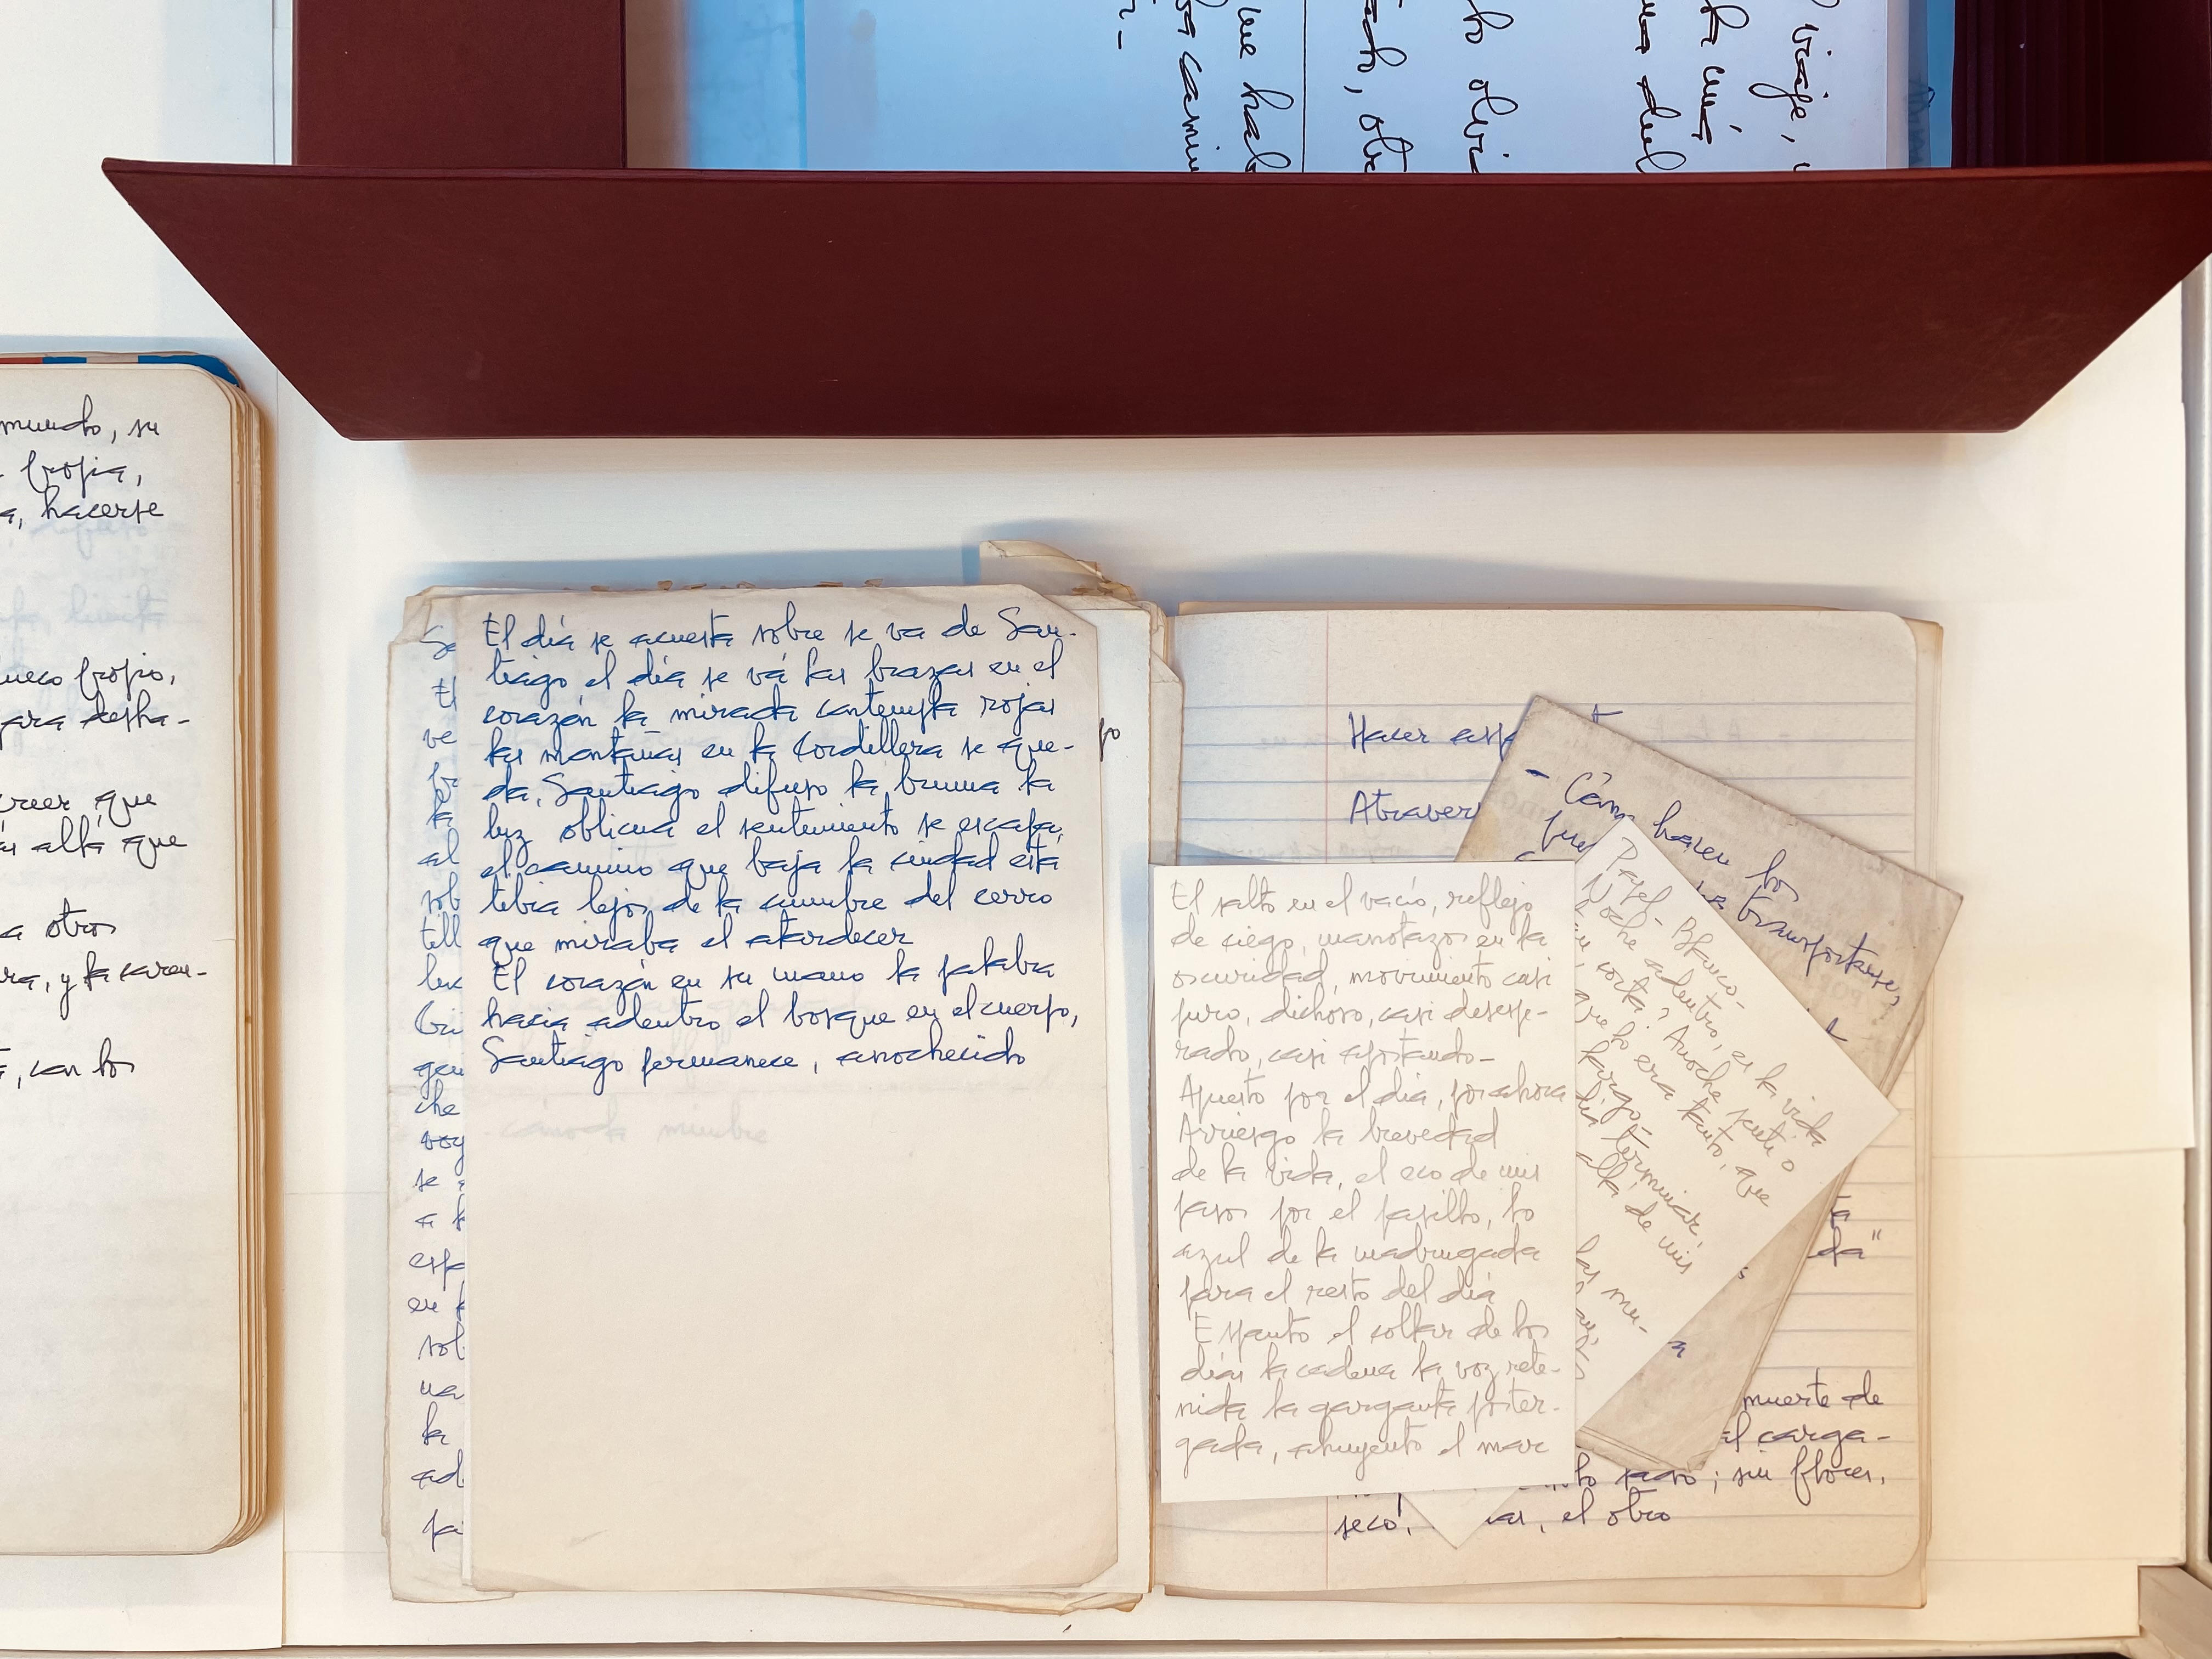 viaje,
olvi
que hab
mundo, su
propia,
a, hacerse
hueco propio,
para desha-
creer, que
más allá que
a otros
ra, y la caren-
, con los
El día se acuesta sobre se va de San-
tiago el día se vá las brazas en el
corazón la mirada contempla rojas
las montañas en la Cordillera se que-
da, Santiago difuso la bruma la
luz oblicua el sentimiento se escapa,
el camino que baja la ciudad está
tibia lejos de la cumbre del cerro
que miraba el atardecer
El corazón en su mano la palabra
hacia adentro el bosque en el cuerpo,
Santiago permanece, anochecido
Se
El
ve
la
al
sob
till
luz
Cri
gen
che
voy
se
a
esp
en
sob
na
la
ad
pa
Hacer
Atraves
- Cómo hacen los
transportarse,
Papel - Blanco -
Noche adentro, es la vida
corta? Anoche sentí
que lo era tanto, que
largo
terminar,
allá de mis
las mu-
El salto en el vacío, reflejo
de ciego, manotazos en la
oscuridad, movimiento casi
puro, dichoso, casi desespe-
rado, casi apostando-
Apuesto por el día, por ahora
Arriesgo la brevedad
de la vida, el eco de mis
pasos por el pasillo, lo
azul de la madrugada
para el resto del día
Espanto el collar de los
días la cadena la voz rete-
nida la garganta poster-
gada, ahuyento el mar
da"
muerte de
al carga-
; sin flores,
seco, el otro